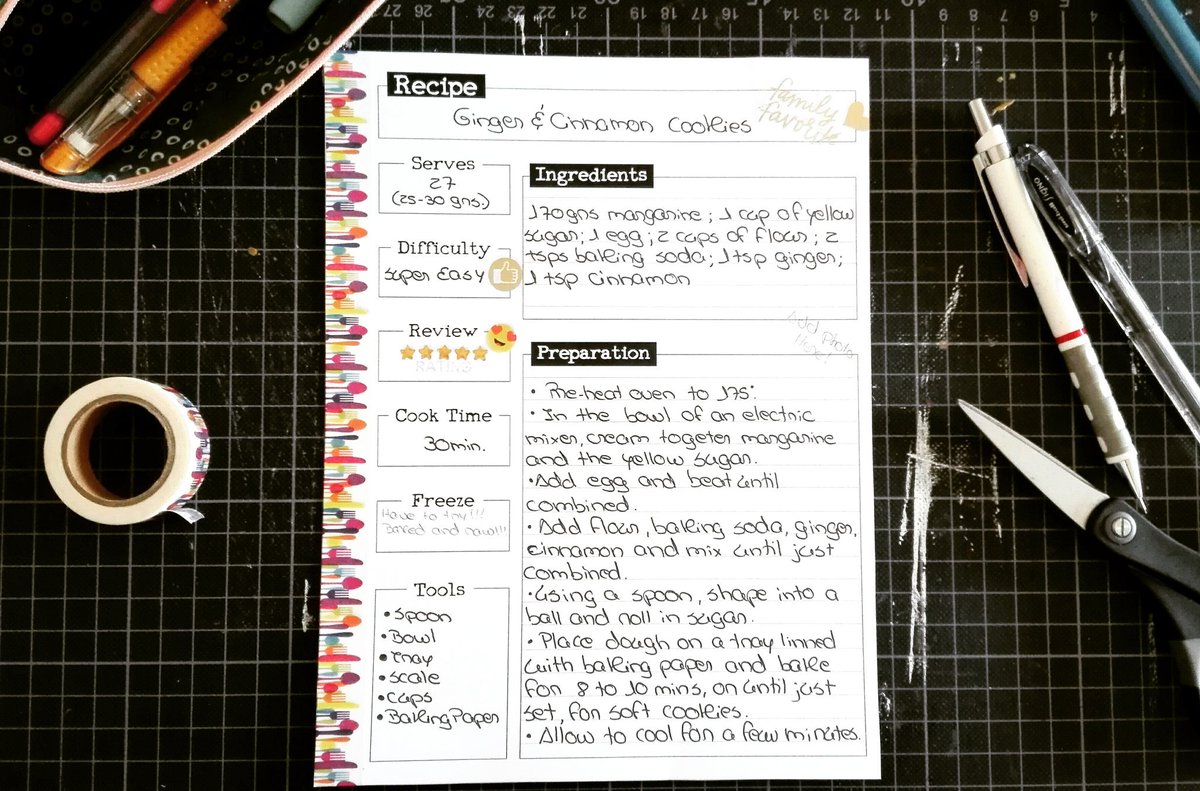 Recipe
family
favorite
Ginger & Cinnamon Cookies
Serves
27
(25-30 grs.)
Difficulty
Super Easy
Review
RATING
Cook Time
30min.
Freeze
Have to try!!!
Baked and raw!!!
Tools
•Spoon
•Bowl
•Tray
•Scale
•Cups
•Baking Paper
Ingredients
170grs margarine; 1 cup of yellow
sugar; 1 egg; 2 cups of flour; 2
tsps baking soda; 1 tsp ginger;
1 tsp cinnamon
Add Photo
Here!
Preparation
• Pre-heat oven to 175º.
• In the bowl of an electric
mixer, cream togeter margarine
and the yellow sugar.
•Add egg and beat until
combined.
•Add flour, baking soda, ginger,
cinnamon and mix until just
combined.
•Using a spoon, shape into a
ball and roll in sugar.
• Place dough on a tray linned
with baking paper and bake
for 8 to 10 mins, or until just
set, for soft cookies.
• Allow to cool for a few minutes.
27 26 25 24 23 22 21 20 19 18 17 16 15 14 13 12 11 10 9 8 7 6 5 4